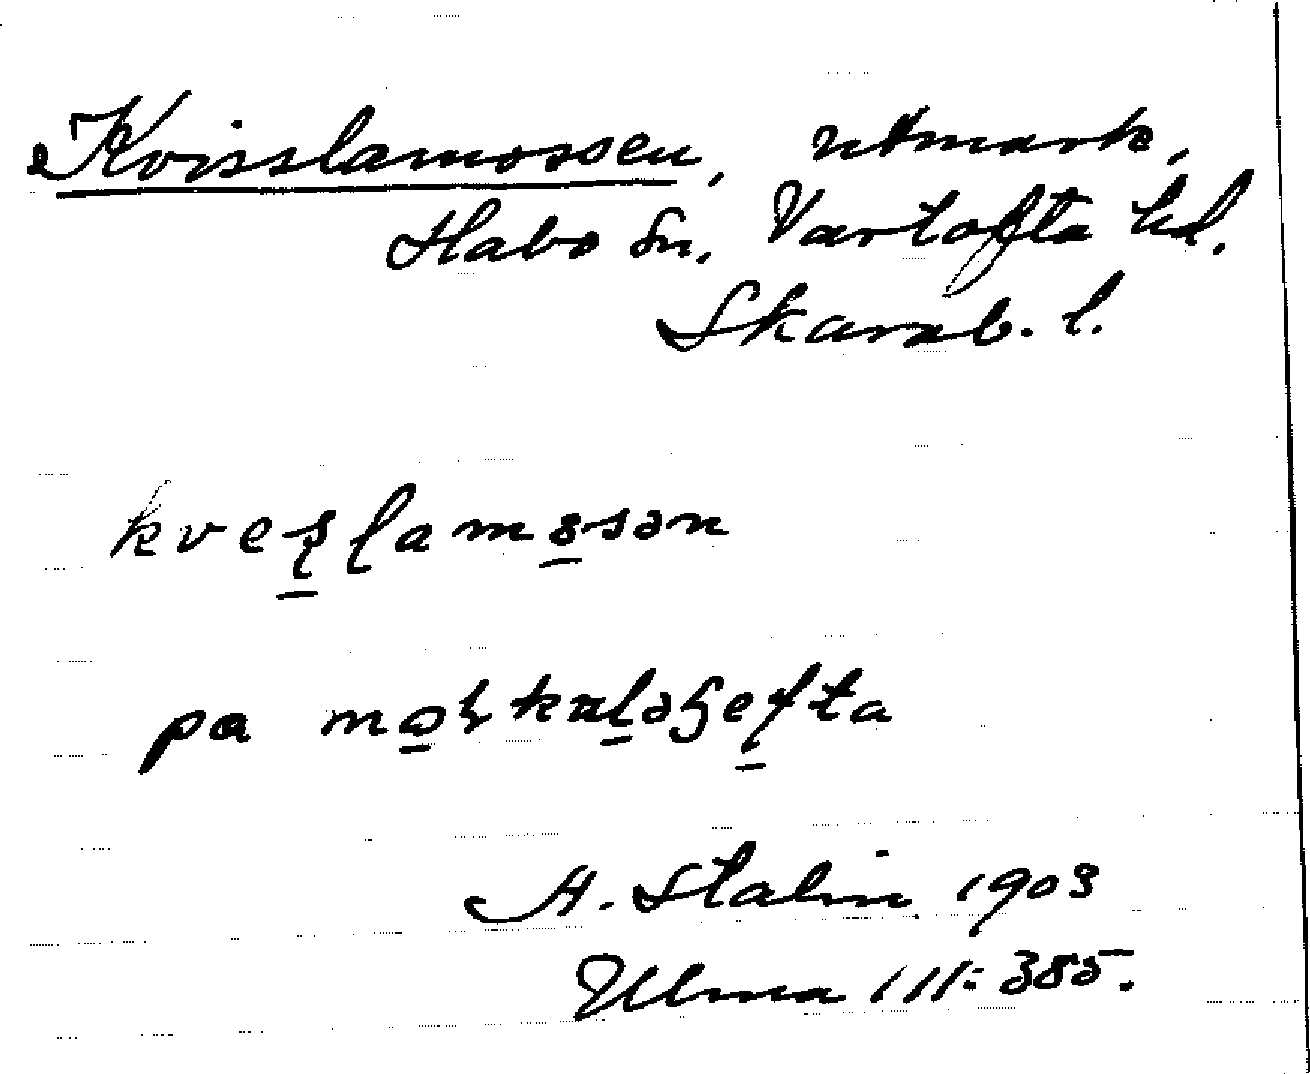 Kvisslamossen, utmark,
Habo sn, Vartofta hd.
Skarab. l.
kveʂɭamosən
pa
A. Stalin 1903
Ulma 111:385.